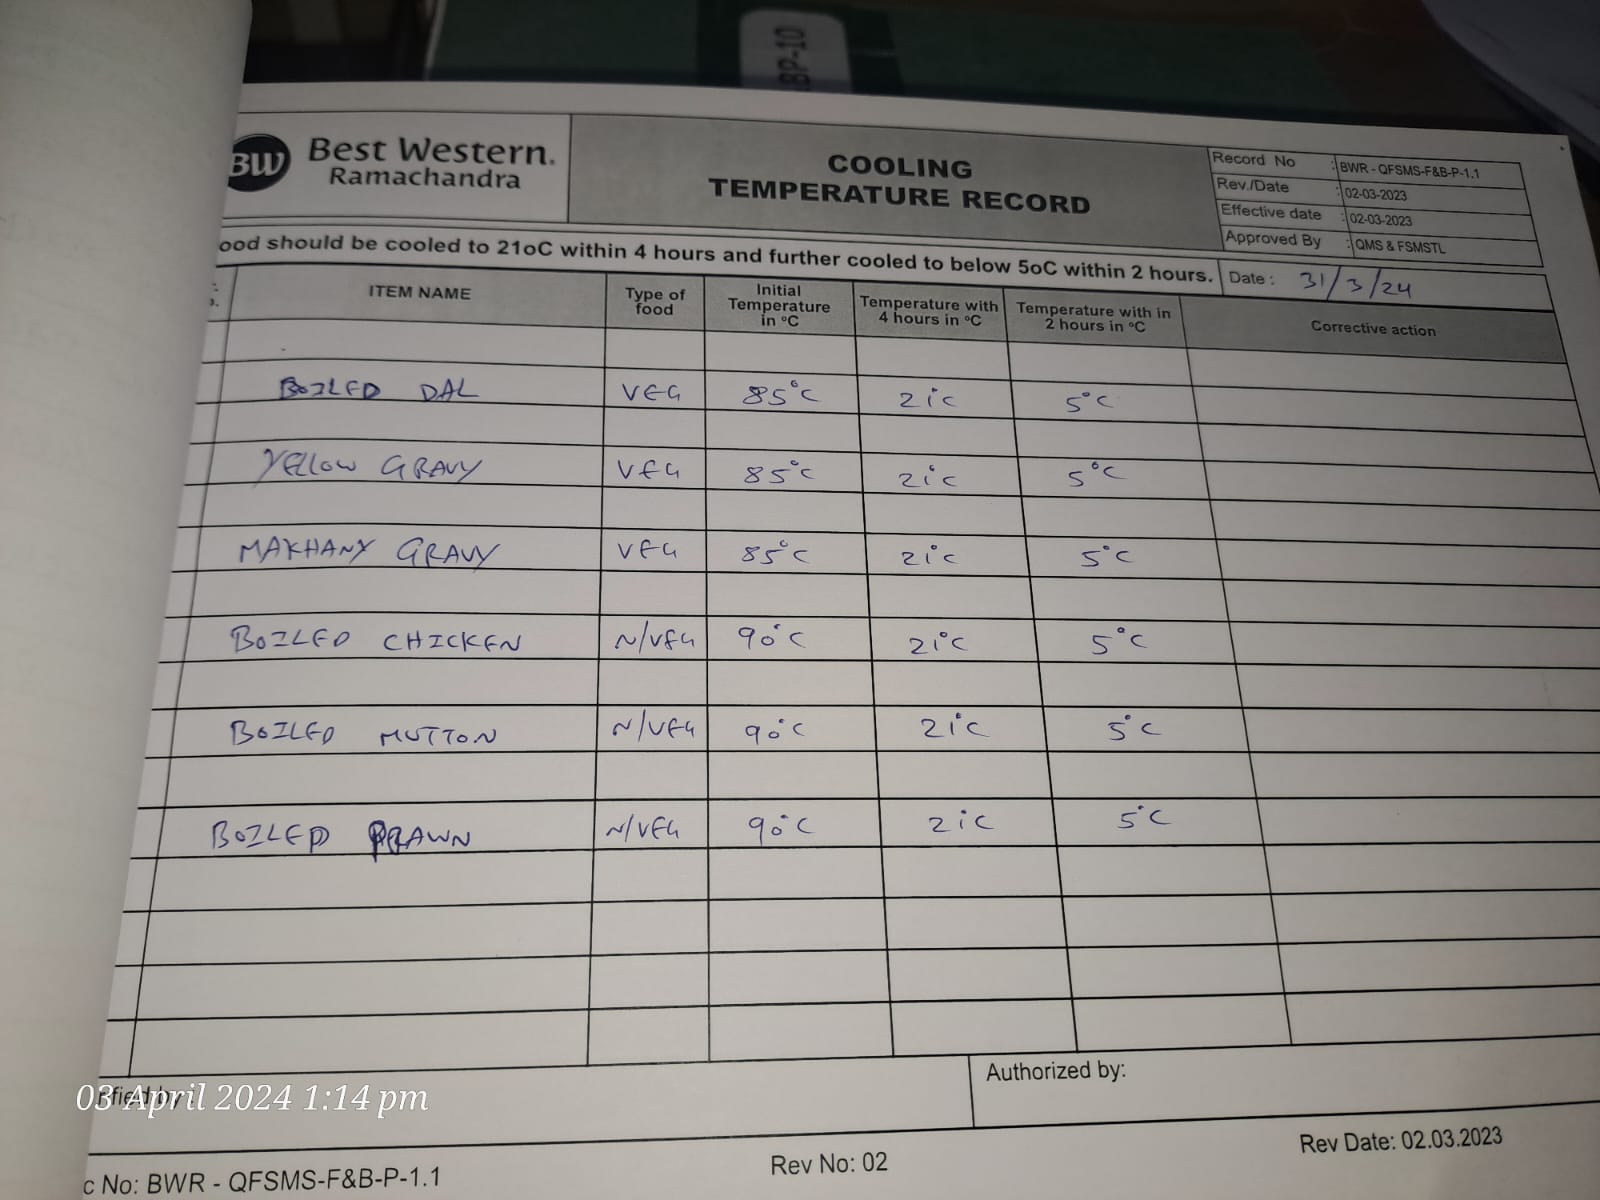 BP-10
BW Best Western.
Ramachandra
COOLING
TEMPERATURE RECORD
Record No : BWR - QFSMS-F&B-P-1.1
Rev./Date : 02-03-2023
Effective date : 02-03-2023
Approved By : QMS & FSMSTL
ood should be cooled to 21oC within 4 hours and further cooled to below 5oC within 2 hours. Date : 31/3/24
ITEM NAME Type of food Initial Temperature in °C Temperature with 4 hours in °C Temperature with in 2 hours in °C Corrective action
BOILED DAL VEG 85°C 21°C 5°C
YELLOW GRAVY VEG 85°C 21°C 5°C
MAKHANY GRAVY VEG 85°C 21°C 5°C
BOILED CHICKEN N/VEG 90°C 21°C 5°C
BOILED MUTTON N/VEG 90°C 21°C 5°C
BOILED PRAWN N/VEG 90°C 21°C 5°C
Authorized by:
03 April 2024 1:14 pm
c No: BWR - QFSMS-F&B-P-1.1 Rev No: 02 Rev Date: 02.03.2023